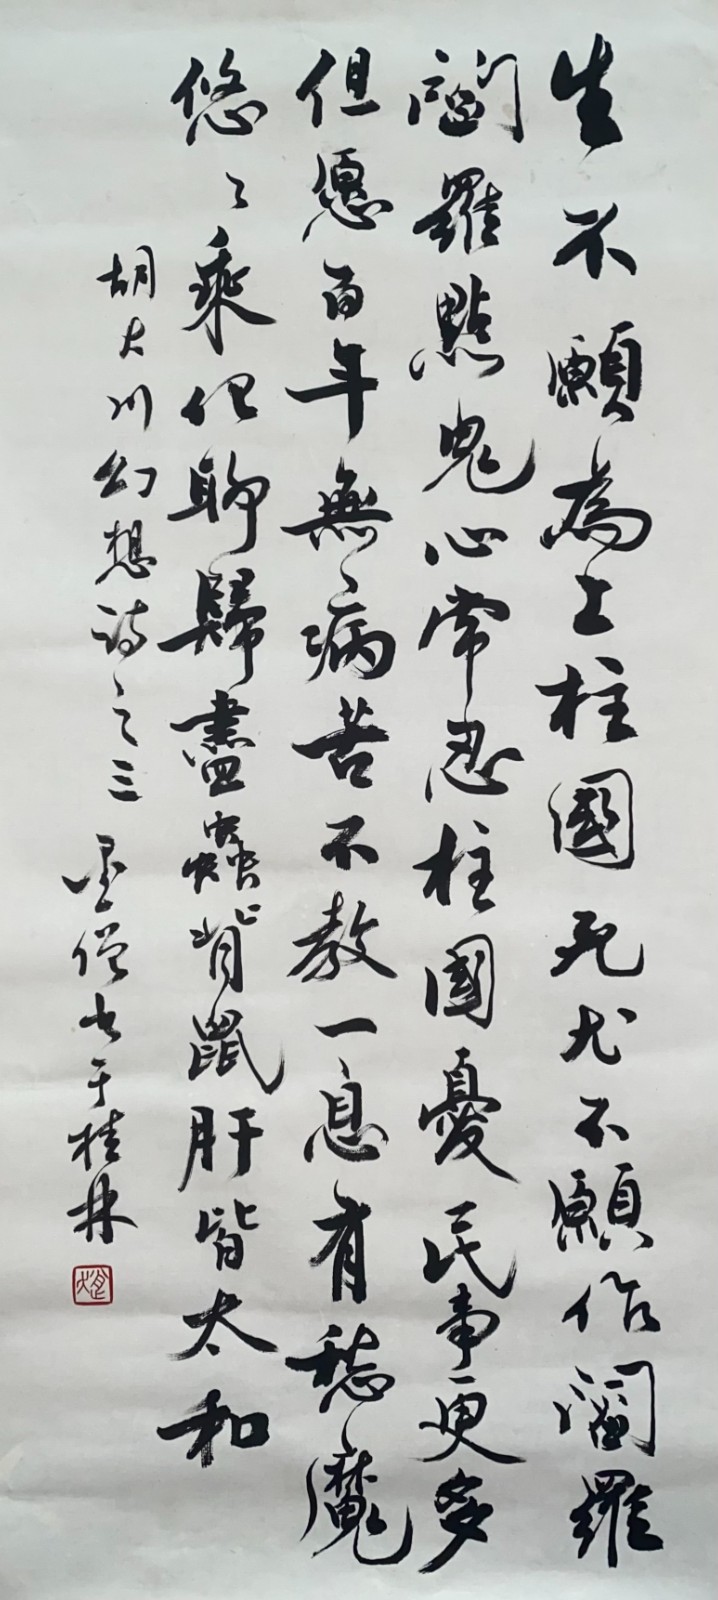 生不願為上柱國死尤不願作閻羅
閻羅點鬼心常忍柱國憂民事更多
但愿百年無病苦不教一息有愁魔
悠々乘化聊歸盡蟲背鼠肝皆太和
胡大川幻想诗之三 墨僧书于桂林
趙